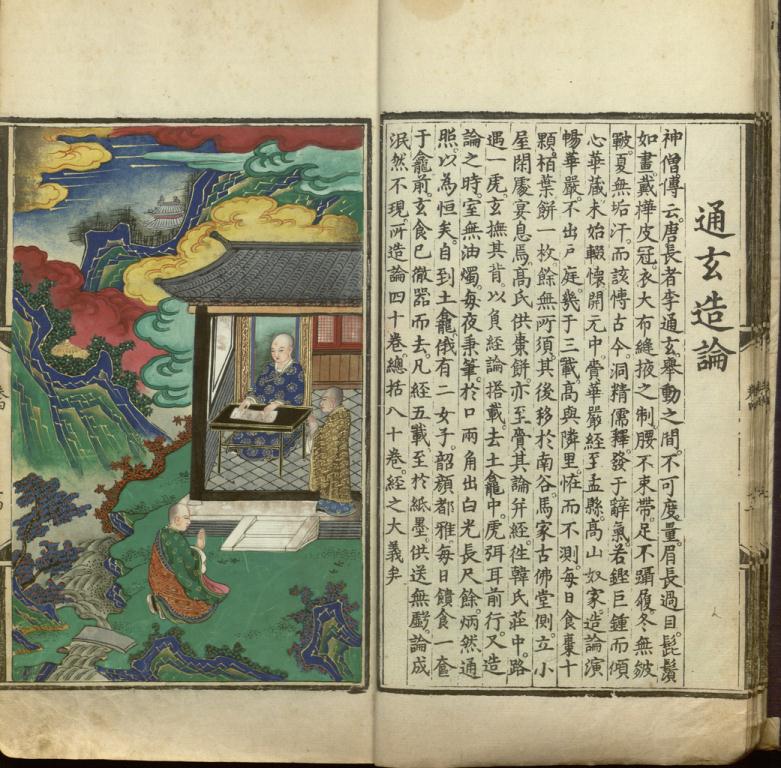 通玄造論
神僧傳云。唐長者李通玄。舉動之間。不可度量。眉長過目。髭鬢
如畫。戴樺皮冠。衣大布縫掖之制。腰不束帶。足不躡履。冬無皴
皸。夏無垢汗。而該博古今。洞精儒釋。發于辭氣。若鏗巨鍾。而傾
心華藏未始輟懷。開元中。賫華嚴經至盂縣。高山奴家。造論演
暢華嚴。不出戶庭。幾于三載。高與隣里。恠而不測。每日食棗十
顆。栢葉餅一枚。餘無所須。其後移於南谷。馬家古佛堂側。立小
屋閑處宴息焉。髙氏供棗餅亦至。賫其論并經。徃韓氏莊中。路
遇一虎。玄撫其背。以負經論。搭載去土龕中。虎弭耳前行。又造
論之時。室無油燭。每夜秉筆。於口兩角出白光。長尺餘。炳然通
照。以為恒矣。自到土龕。俄有二女子。韶顏都雅。每日饋食一奩
于龕前。玄食已。徹器而去。凡經五載。至於紙墨。供送無虧。論成
泯然不現。所造論四十卷。總括八十卷。經之大義矣